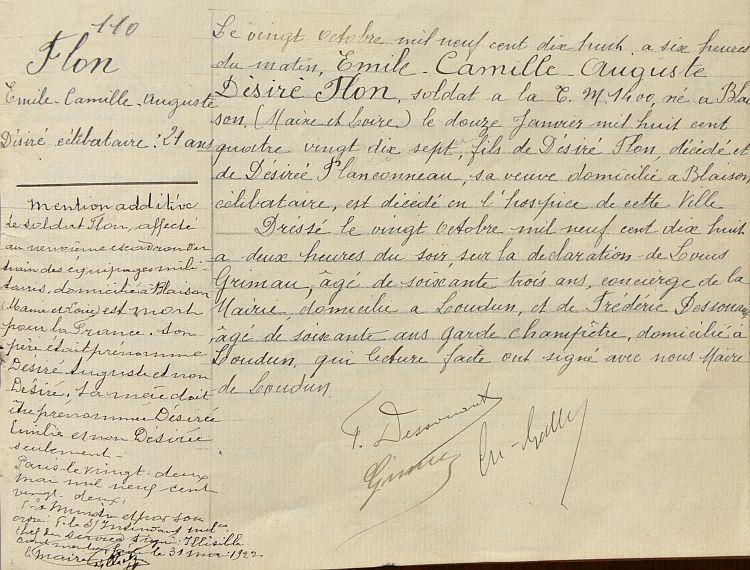 110
Flon
Emile-Camille-Auguste
Désiré célibataire. 21 ans
Mention additive
Le soldat Flon, affecté
au neuvième escadron du
train des équipages mili-
taires, domicilié à Blaison
(Maine et Loire) est mort
pour la France. Son
père était prénommé
Désiré Auguste et non
Désiré. Sa mère doit
être prénommée Désirée
Emilie et non Désirée
seulement.
Paris le vingt-deux
mai mil neuf cent
vingt-deux.
et par son
ordre
chef du service signé: Illisible
le 31 mai 1922
Maire
Le vingt Octobre mil neuf cent dix huit, a six heures
du matin, Emile-Camille-Auguste
Désiré Flon, soldat a la T. M. 1400, né a Blai-
son. (Maine et Loire) le douze Janvier mil huit cent
quatre vingt dix sept, fils de Désiré Flon, décédé et
de Désirée Planconneau, sa veuve domiciliée a Blaison
célibataire, est décédé en l'hospice de cette Ville
Dressé le vingt Octobre mil neuf cent dix huit
a deux heures du soir, sur la déclaration de Louis
Grimau, âgé de soixante trois ans, concierge de la
Mairie, domicilié a Loudun, et de Frédéric Dessouaux
âgé de soixante ans garde champêtre, domicilié à
Loudun, qui lecture faite ont signé avec nous Maire
de Loudun.
F. Dessouaux